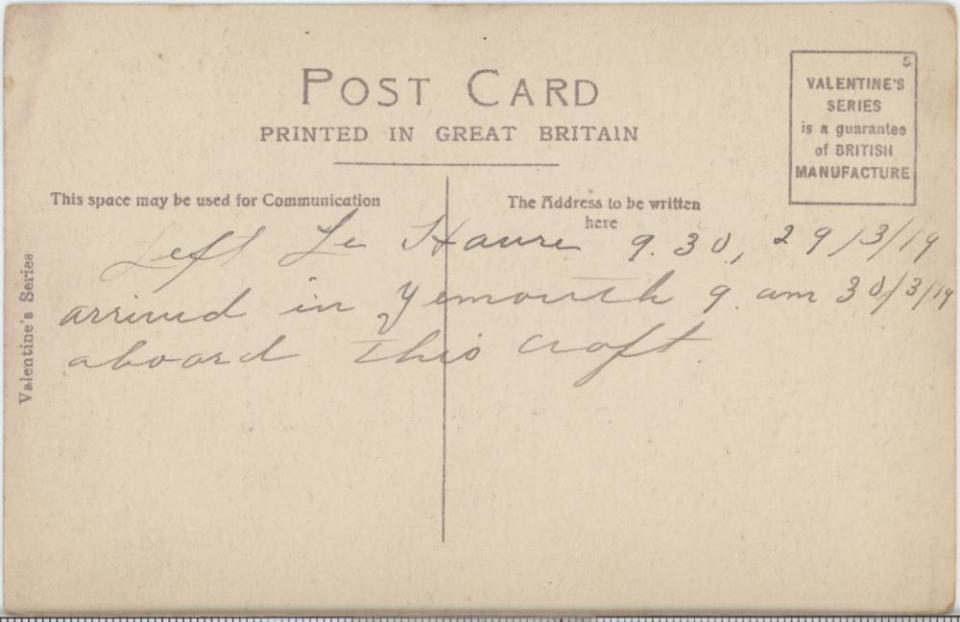 POST CARD
PRINTED IN GREAT BRITAIN
5
VALENTINE'S
SERIES
is a guarantee
of BRITISH
MANUFACTURE
This space may be used for Communication
The Address to be written
here
Valentine's Series
Left Le Havre 9.30., 29/3/19
arrived in Yemouth 9. am 30/3/19
aboard this craft.